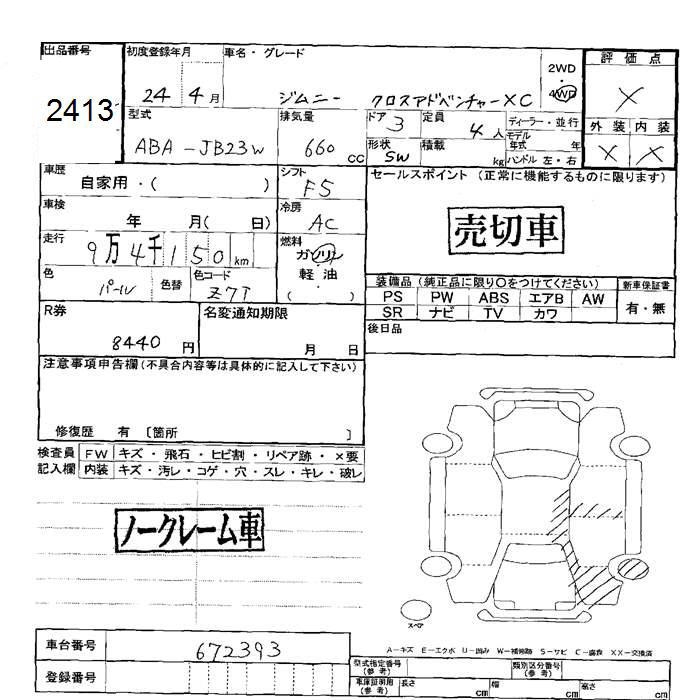 出品番号 初度登録年月 車名・グレード 評価点
2413 24 4月 ジムニー クロスアドベンチャーXC 2WD・4WD X
型式 排気量 ドア 3 定員 4人 ディーラー・並行 外装 内装
ABA-JB23W 660 CC 形状 SW 積載 kg モデル年式 年 X X
ハンドル 左・右
車歴 シフト セールスポイント (正常に機能するものに限ります)
自家用・( ) F5
車検 冷房 売切車
年 月( 日) AC
走行 燃料
9万4千150km ガソリン
色 色替 色コード 軽油 装備品 (純正品に限り○をつけてください) 新車保証書
パール Z7T ( ) PS PW ABS エアB AW 有・無
R券 名変通知期限 SR ナビ TV カワ
8440円 月 日 後日品
注意事項申告欄 (不具合内容等は具体的に記入して下さい)
修復歴 有 〔箇所 〕
検査員 FW キズ・飛石・ヒビ割・リペア跡・×要
記入欄 内装 キズ・汚レ・コゲ・穴・スレ・キレ・破レ
ノークレーム車
スペア
A-キズ E-エクボ U-凹み W-補修跡 S-サビ C-腐食 XX-交換済
車台番号 672393
型式指定番号(参考) 類別区分番号(参考)
登録番号 車庫証明用(参考) 長さ cm 幅 cm 高さ cm